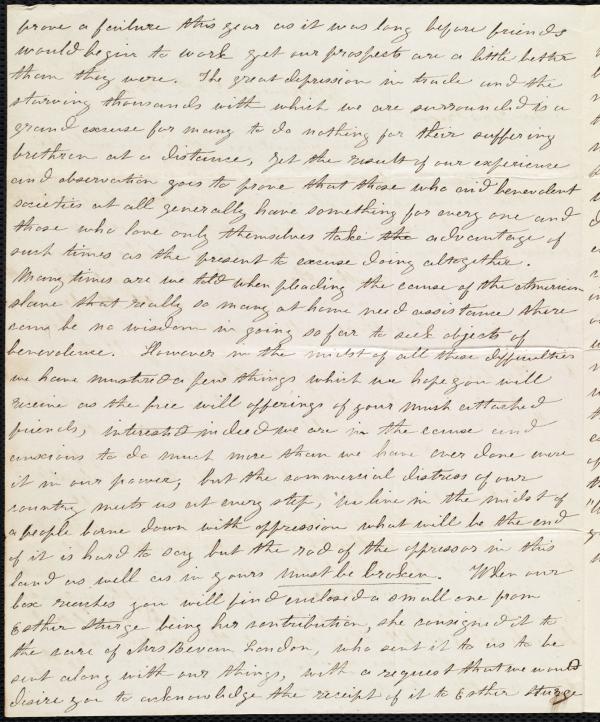 prove a failure this year as it was long before friends
would begin to work yet our prospects are a little better
than they were. The great depression in trade and the
starving thousands with which we are surrounded is a
grand excuse for many to do nothing for their suffering
brethren at a distance, yet the result of our experience
and observation goes to prove that those who aid benevolent
societies at all generally have something for every one and
those who love only themselves take the advantage of
such times as the present to excuse doing altogether.
Many times are we told when pleading the cause of the American
slave that really so many at home need assistance there
can be no wisdom in going so far to seek objects of
benevolence. However in the midst of all these difficulties
we have mustered a few things which we hope you will
receive as the free will offerings of your much attached
friends, interested indeed we are in the cause and
anxious to do much more than we have ever done were
it in our power, but the commercial distress of our
country meets us at every step, we live in the midst of
a people borne down with oppression what will be the end
of it is hard to say but the rod of the oppressor in this
land as well as in yours must be broken. When our
box reaches you will find enclosed a small one from
Esther Sturge being her contribution, she consigned it to
the care of Mrs Bevan London, who sent it to us to be
sent along with our things, with a request that we would
desire you to acknowledge the receipt of it to Esther Sturge